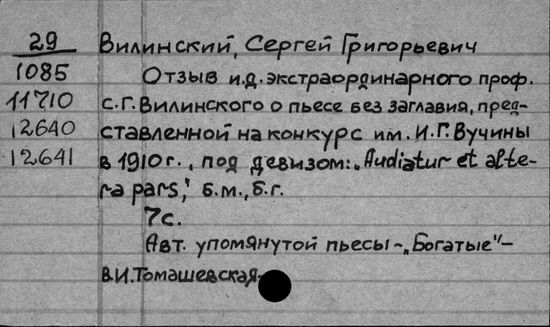 29 Вилинский, Сергей Григорьевич
1085 Отзыв и.д. экстраординарного проф.
11710 с.Г. Вилинского о пьесе без заглавия, пред-
12640 ставленной на конкурс им. И.Г. Вучины
12641 в 1910 г., под девизом: „Audiatur et alte-
ra pars", б.м., б.г.
7с.
Авт. упомянутой пьесы - „Богатые" -
В.И. Томашевская.